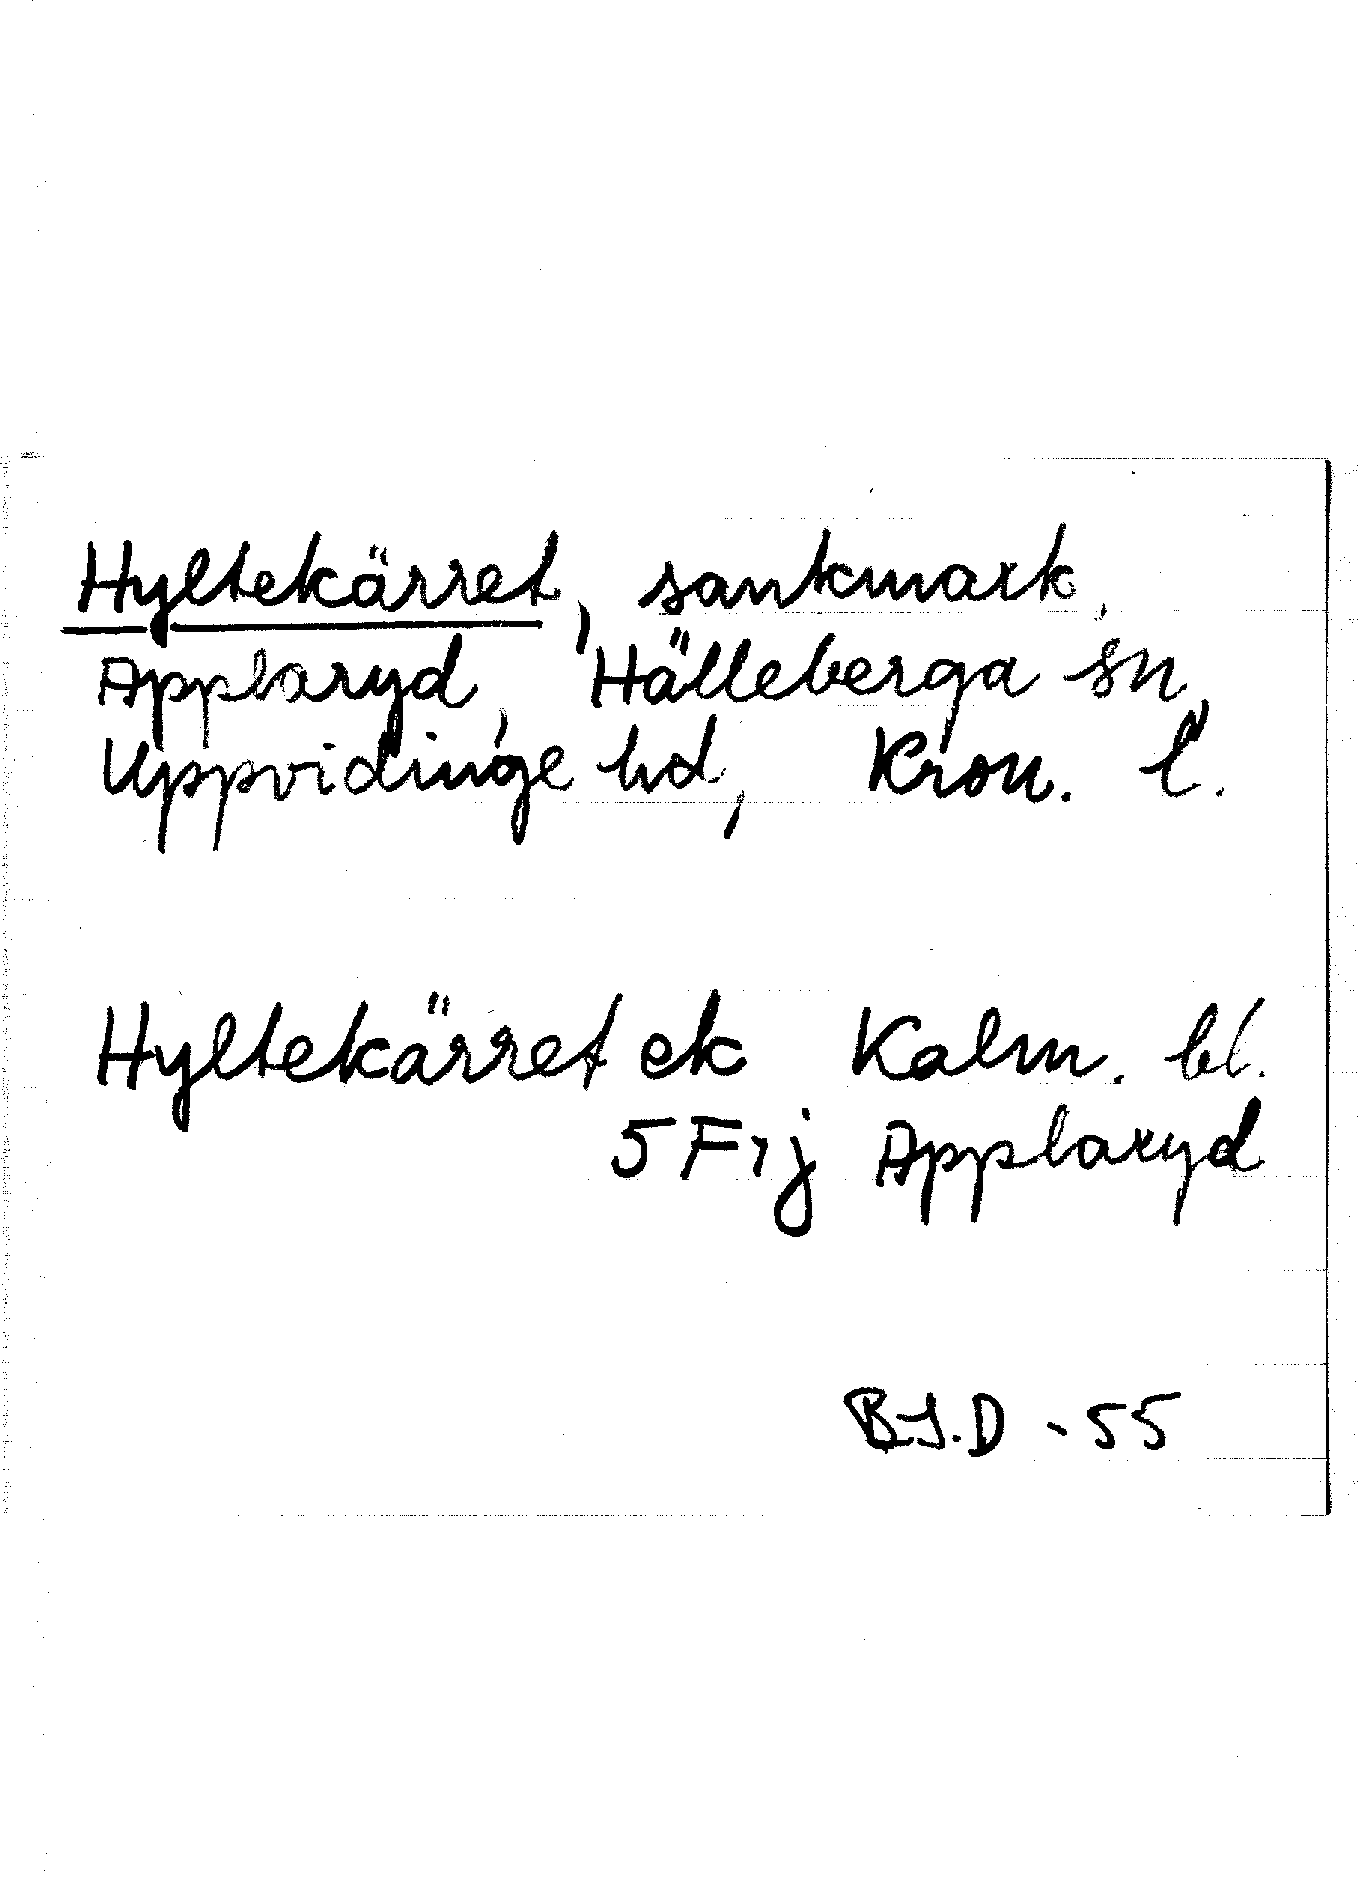 Hyltekärret, sankmark,
Applaryd, Hälleberga sn,
Uppvidinge hd, Kron. l.
Hyltekärret ek Kalm. bl.
5 F i j Applaryd
B.J.D - 55